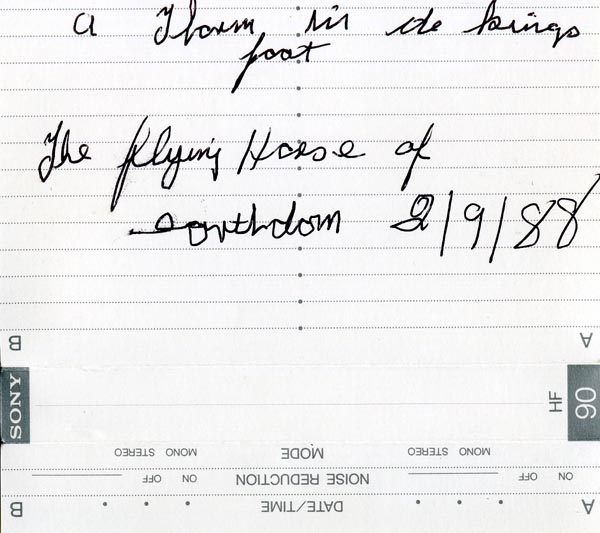 a Thorn in de kings
foot
The flying Horse of
earthdom 2/9/88
B A
SONY HF 90
MONO STEREO MODE MONO STEREO
ON OFF NOISE REDUCTION ON OFF
B DATE/TIME A